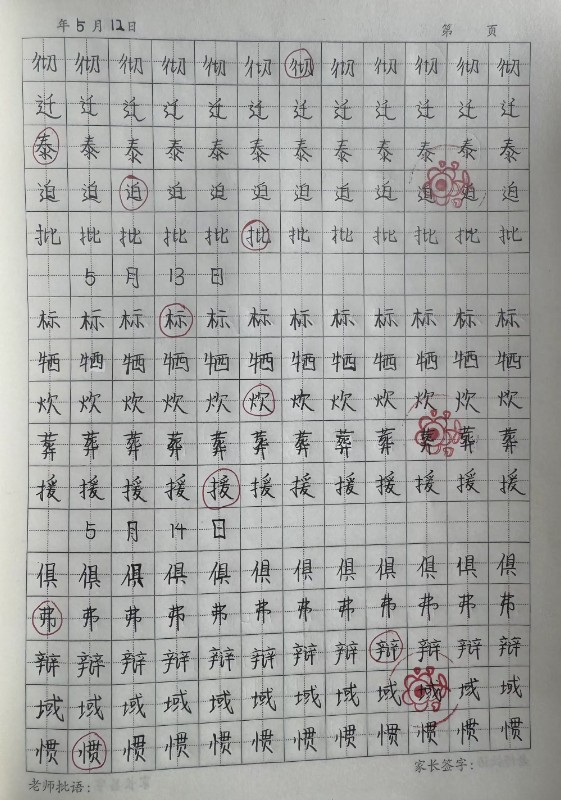 年5月12日 第 页
彻彻彻彻彻彻彻彻彻彻彻彻
迁迁迁迁迁迁迁迁迁迁迁迁
泰泰泰泰泰泰泰泰泰泰泰泰
迫迫迫迫迫迫迫迫迫迫迫迫
批批批批批批批批批批批批
5月13日
标标标标标标标标标标标标
牺牺牺牺牺牺牺牺牺牺牺牺
炊炊炊炊炊炊炊炊炊炊炊炊
葬葬葬葬葬葬葬葬葬葬葬葬
援援援援援援援援援援援援
5月14日
俱俱俱俱俱俱俱俱俱俱俱俱
弗弗弗弗弗弗弗弗弗弗弗弗
辩辩辩辩辩辩辩辩辩辩辩辩
域域域域域域域域域域域域
惯惯惯惯惯惯惯惯惯惯惯惯
老师批语： 家长签字：